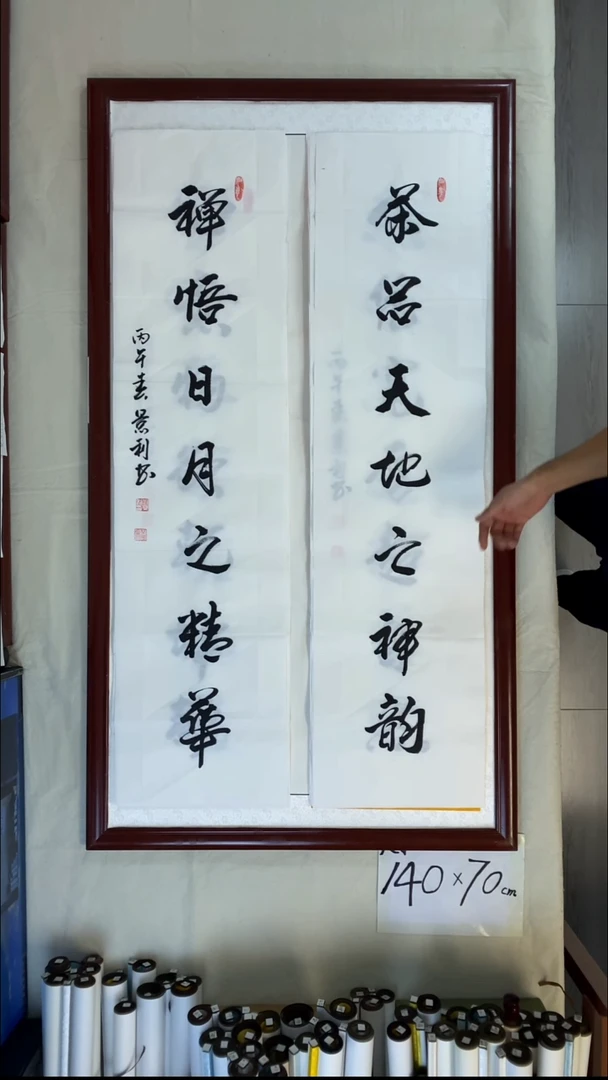 茶品天地之神韵
禅悟日月之精華
丙午春景利书
140×70cm